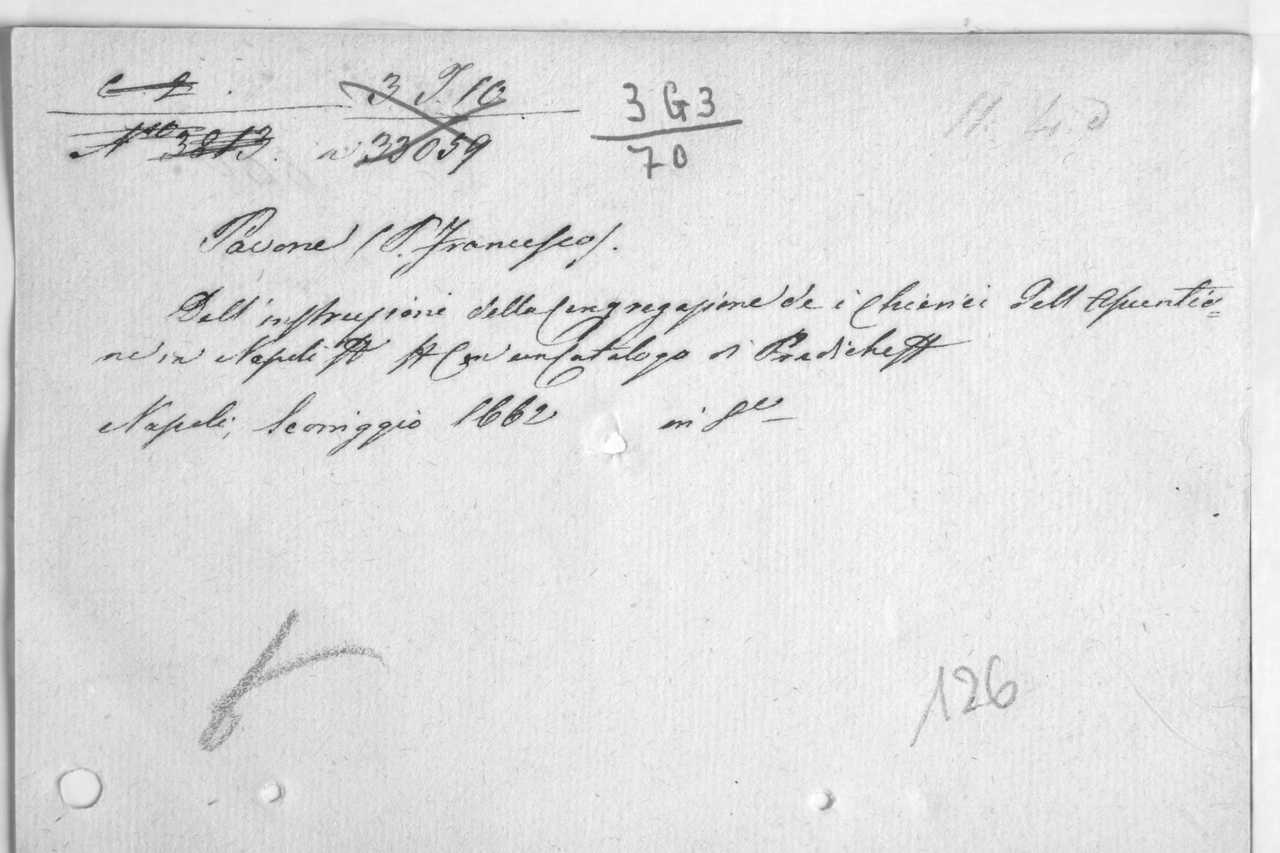 3 J. 10
3 G 3
Nro 3813. n 32059
70
Pavone (P. Francesco).
Dell' instruzioni della Congregazione de i Chierici dell' Assuntio=
ne in Napoli # # Con un Catalogo di Prediche #
Napoli, Scoriggio 1662 in 8º
126